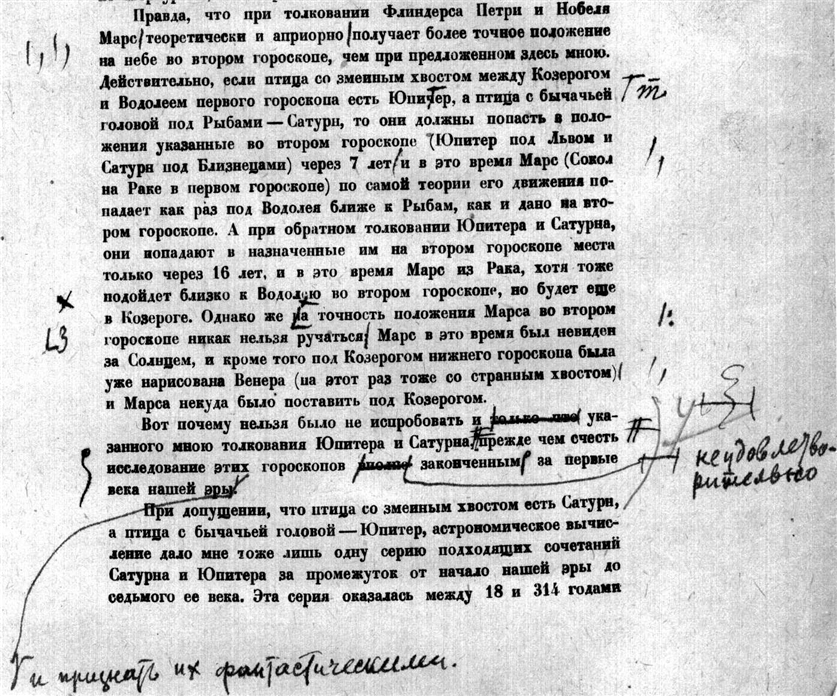 Правда, что при толковании Флиндерса Петри и Нобеля
Марс/теоретически и априорно/получает более точное положение
на небе во втором гороскопе, чем при предложенном здесь мною.
Действительно, если птица со змеиным хвостом между Козерогом
и Водолеем первого гороскопа есть Юпитер, а птица с бычачьей
головой под Рыбами — Сатурн, то они должны попасть в поло-
жения указанные во втором гороскопе (Юпитер под Львом и
Сатурн под Близнецами) через 7 лет/и в это время Марс (Сокол
на Раке в первом гороскопе) по самой теории его движения по-
падает как раз под Водолея ближе к Рыбам, как и дано на вто-
ром гороскопе. А при обратном толковании Юпитера и Сатурна,
они попадают в назначенные им на втором гороскопе места
только через 16 лет, и в это время Марс из Рака, хотя тоже
подойдет близко к Водолею во втором гороскопе, но будет еще
в Козероге. Однако же на точность положения Марса во втором
гороскопе никак нельзя ручаться/ Марс в это время был невиден
за Солнцем, и кроме того под Козерогом нижнего гороскопа была
уже нарисована Венера (на этот раз тоже со странным хвостом)/
и Марса некуда было поставить под Козерогом.
Вот почему нельзя было не испробовать и только что ука-
занного мною толкования Юпитера и Сатурна, прежде чем счесть
исследование этих гороскопов вполне законченным за первые
века нашей эры.
неудовлетво-
рительно
При допущении, что птица со змеиным хвостом есть Сатурн,
а птица с бычачьей головой — Юпитер, астрономическое вычис-
ление дало мне тоже лишь одну серию подходящих сочетаний
Сатурна и Юпитера за промежуток от начало нашей эры до
седьмого ее века. Эта серия оказалась между 18 и 314 годами
и признать их фантастическими.